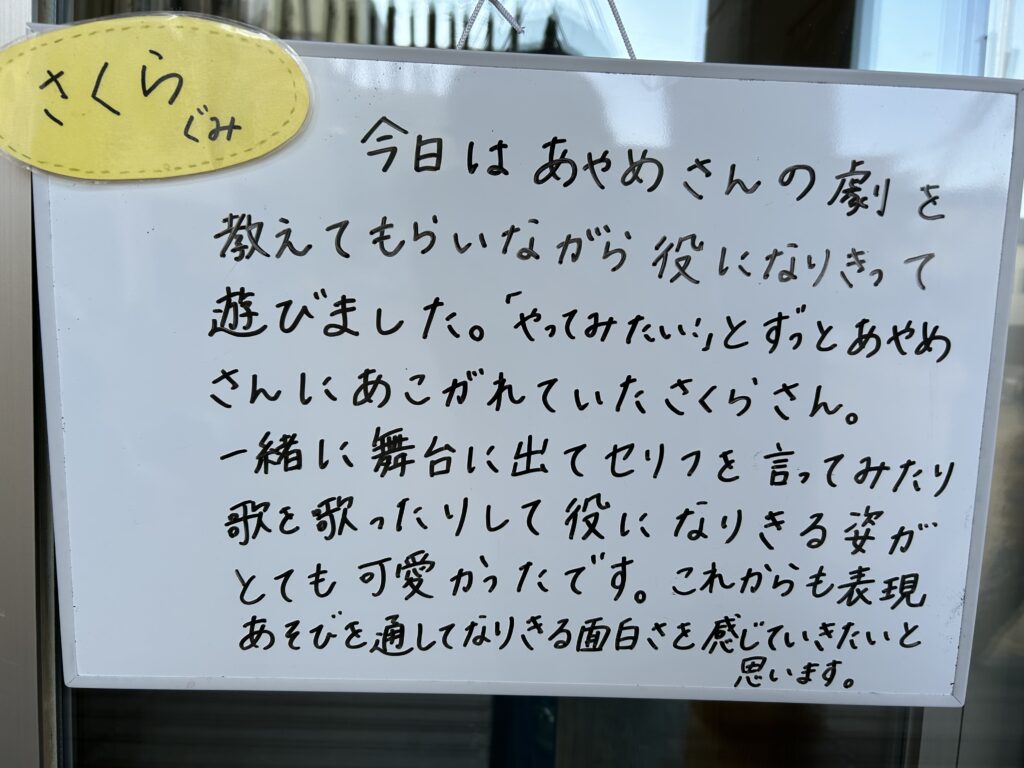 さくら
ぐみ
今日はあやめさんの劇を
教えてもらいながら役になりきって
遊びました。「やってみたい!」とずっとあやめ
さんにあこがれていたさくらさん。
一緒に舞台に出てセリフを言ってみたり
歌を歌ったりして役になりきる姿が
とても可愛かったです。これからも表現
あそびを通してなりきる面白さを感じていきたいと
思います。